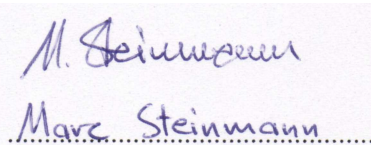 M. Steinmann
Marc Steinmann